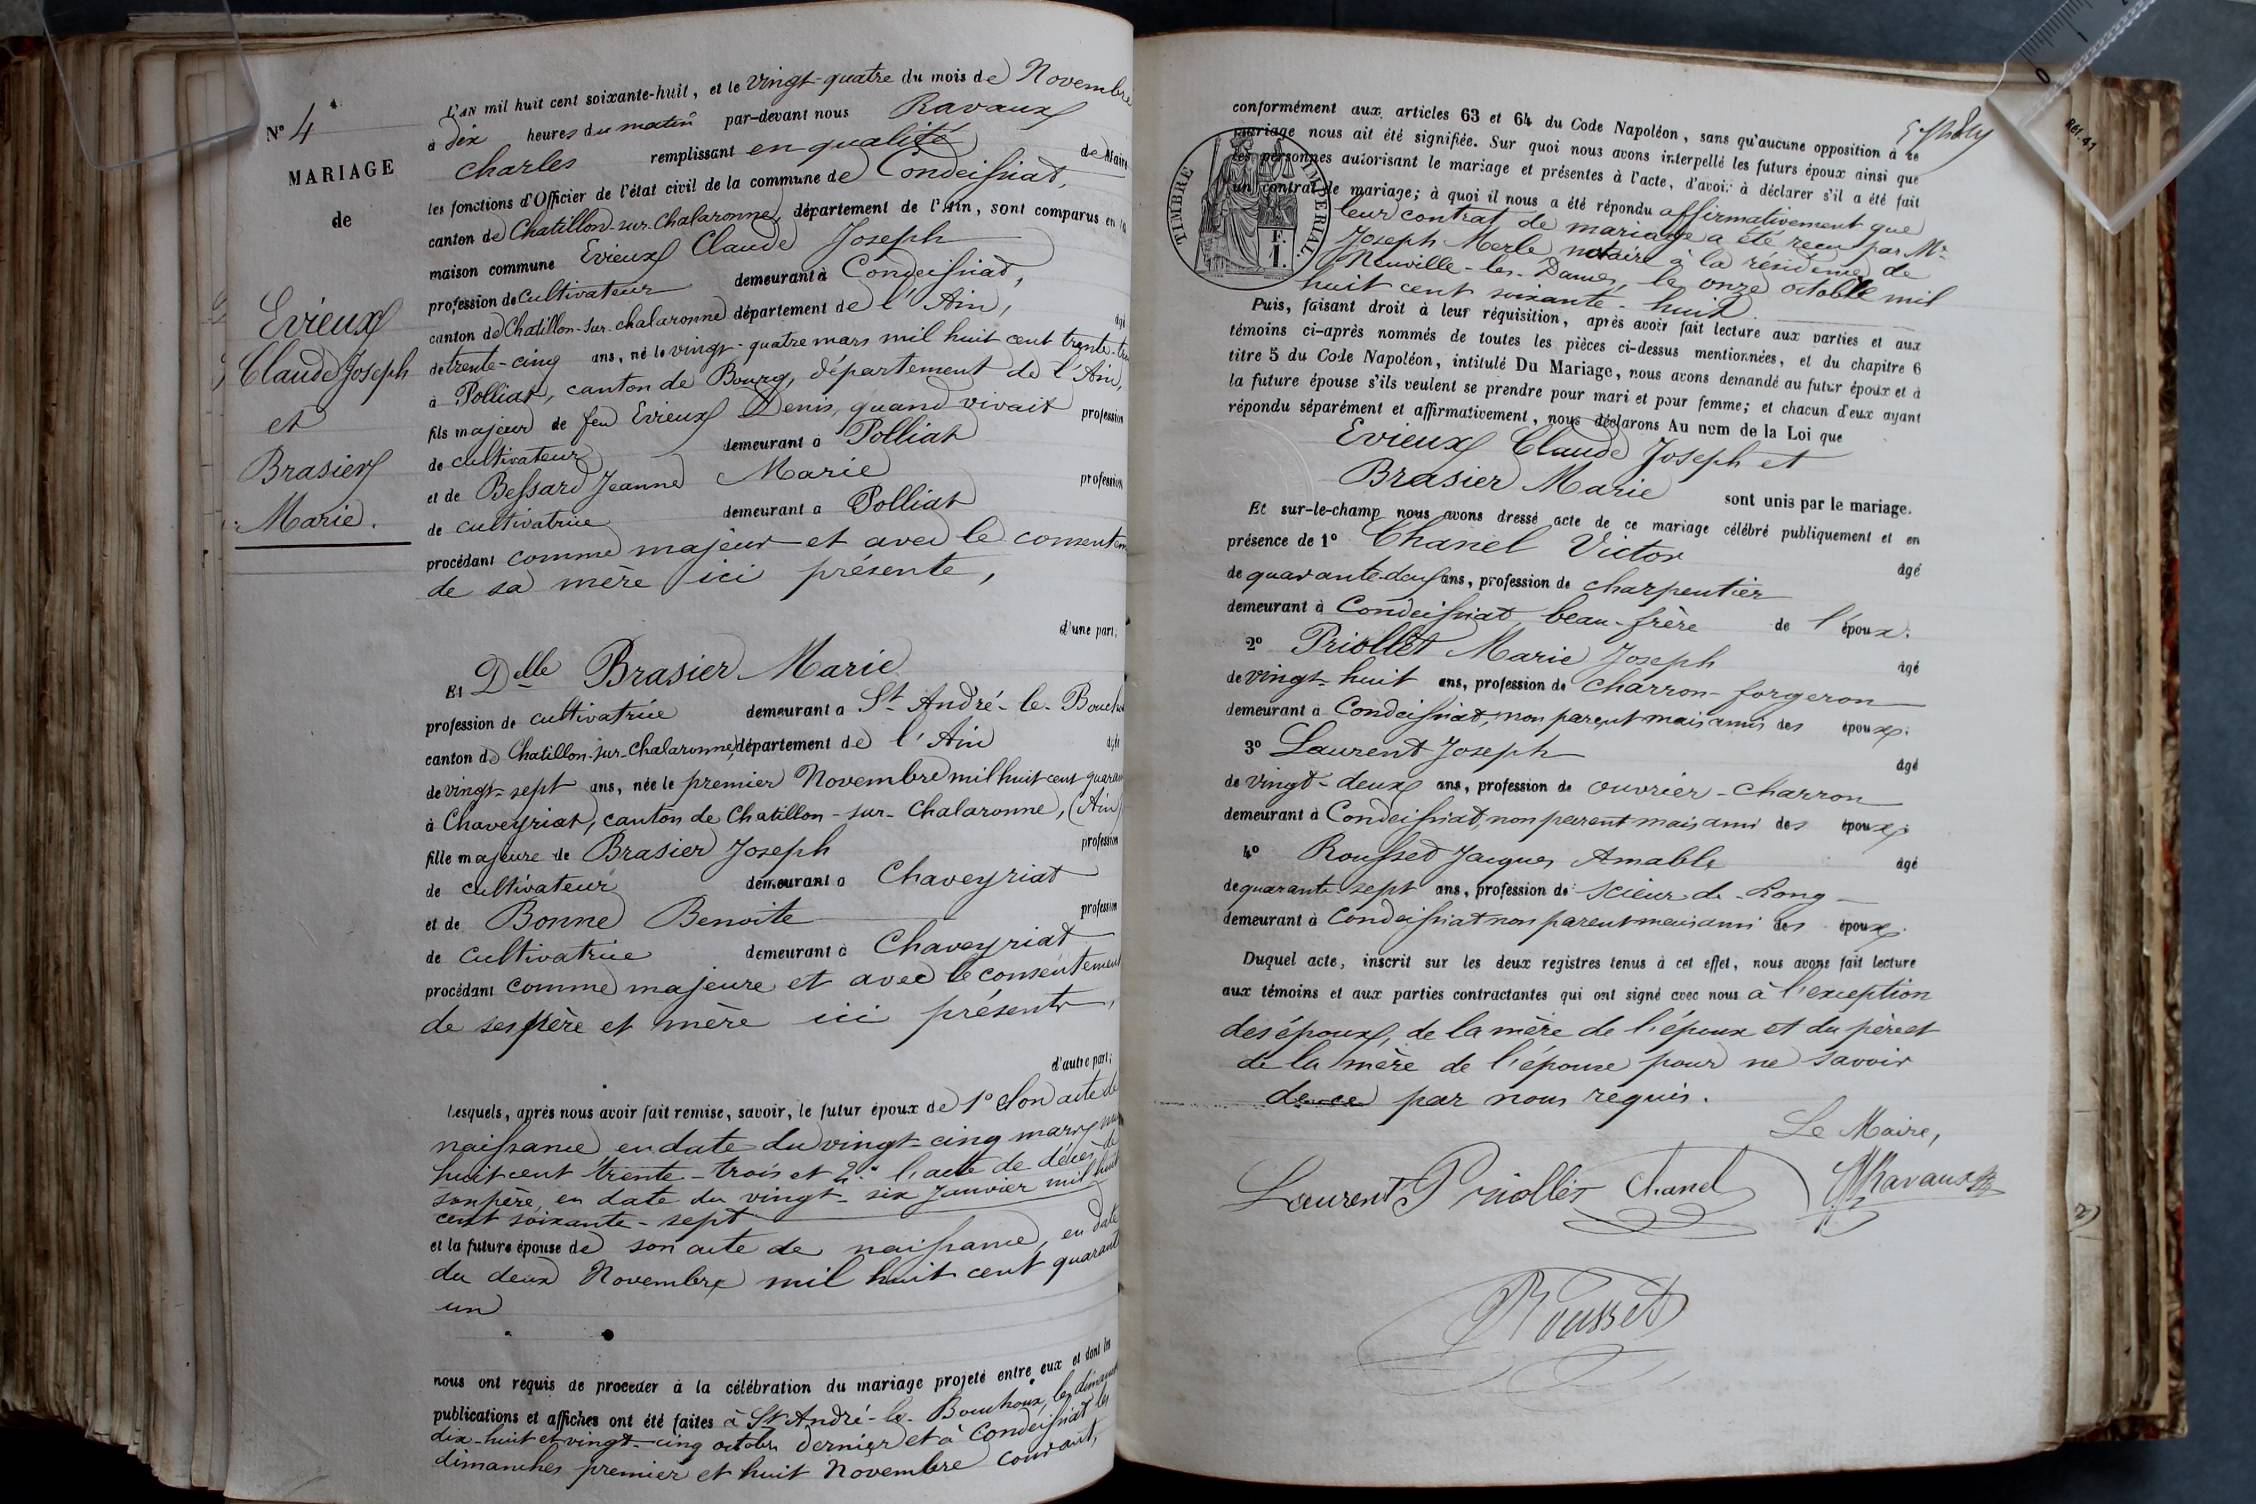 N° 4
MARIAGE
de
Evieux
Claude Joseph
et
Brasier
Marie.
L'AN mil huit cent soixante-huit, et le vingt-quatre du mois de Novembre
à dix heures du matin par-devant nous Ravaux
Charles remplissant en qualité de Maire
les fonctions d'Officier de l'état civil de la commune de Condeissiat,
canton de Chatillon-sur-Chalaronne, département de l'Ain, sont comparus en la
maison commune Evieux Claude Joseph
profession de cultivateur demeurant à Condeissiat,
canton de Chatillon-sur-chalaronne département de l'Ain, âgé
de trente-cinq ans, né le vingt-quatre mars mil huit cent trente-trois
à Polliat, canton de Bourg, département de l'Ain,
fils majeur de feu Evieux Denis, quand vivait profession
de cultivateur demeurant à Polliat
et de Bessard Jeanne Marie profession
de cultivatrice demeurant à Polliat
procédant comme majeur et avec le consentem
de sa mère ici présente,
d'une part;
Et Delle Brasier Marie
profession de cultivatrice demeurant à St André-le-Bouch
canton de Chatillon-sur-Chalaronne, département de l'Ain âgée
de vingt-sept ans, née le premier Novembre mil huit cent quaran
à Chaveyriat, canton de Chatillon-sur-Chalaronne, (Ain)
fille majeure de Brasier Joseph profession
de cultivateur demeurant à Chaveyriat
et de Bonne Benoite profession
de cultivatrice demeurant à Chaveyriat
procédant comme majeure et avec le consentement
de ses père et mère ici présents,
d'autre part;
Lesquels, après nous avoir fait remise, savoir, le futur époux de 1° Son acte de
naissance en date du vingt-cinq mars mil
huit cent trente-trois et 2° l'acte de décès de
son père, en date du vingt-six Janvier mil huit
cent soixante-sept
et la future épouse de son acte de naissance, en date
du deux Novembre mil huit cent quarante
un
nous ont requis de procéder à la célébration du mariage projeté entre eux et dont les
publications et affiches ont été faites à St André-le-Bouchoux, les dimanches
dix-huit et vingt-cinq octobre dernier et à Condeissiat les
dimanches premier et huit Novembre courant,
conformément aux articles 63 et 64 du Code Napoléon, sans qu'aucune opposition à ce
mariage nous ait été signifiée. Sur quoi nous avons interpellé les futurs époux ainsi que
les personnes autorisant le mariage et présentes à l'acte, d'avoir à déclarer s'il a été fait
un contrat de mariage; à quoi il nous a été répondu affirmativement que
leur contrat de mariage a été reçu par Me
Joseph Merle notaire à la résidence de
Neuville-les-Dames, le onze octobre mil
huit cent soixante-huit.
TIMBRE IMPERIAL.
F.
1.
Puis, faisant droit à leur réquisition, après avoir fait lecture aux parties et aux
témoins ci-après nommés de toutes les pièces ci-dessus mentionnées, et du chapitre 6
titre 5 du Code Napoléon, intitulé Du Mariage, nous avons demandé au futur époux et à
la future épouse s'ils veulent se prendre pour mari et pour femme; et chacun d'eux ayant
répondu séparément et affirmativement, nous déclarons Au nom de la Loi que
Evieux Claude Joseph et
Brasier Marie sont unis par le mariage.
Et sur-le-champ nous avons dressé acte de ce mariage célébré publiquement et en
présence de 1° Chanel Victor âgé
de quarante-deux ans, profession de charpentier
demeurant à Condeissiat, beau-frère de l'époux.
2° Priollet Marie Joseph âgé
de vingt-huit ans, profession de charron-forgeron
demeurant à Condeissiat, non parent mais ami des époux.
3° Laurent Joseph âgé
de vingt-deux ans, profession de ouvrier-charron
demeurant à Condeissiat, non parent mais ami des époux.
4° Rousset Jacques Amable âgé
de quarante-sept ans, profession de scieur-de-Long
demeurant à Condeissiat non parent mais ami des époux.
Duquel acte, inscrit sur les deux registres tenus à cet effet, nous avons fait lecture
aux témoins et aux parties contractantes qui ont signé avec nous à l'exception
des époux, de la mère de l'époux et du père et
de la mère de l'épouse pour ne savoir
de ce par nous requis.
Le Maire,
Laurent Priollet Chanel Ravaux
Rousset
0
Réf. 41